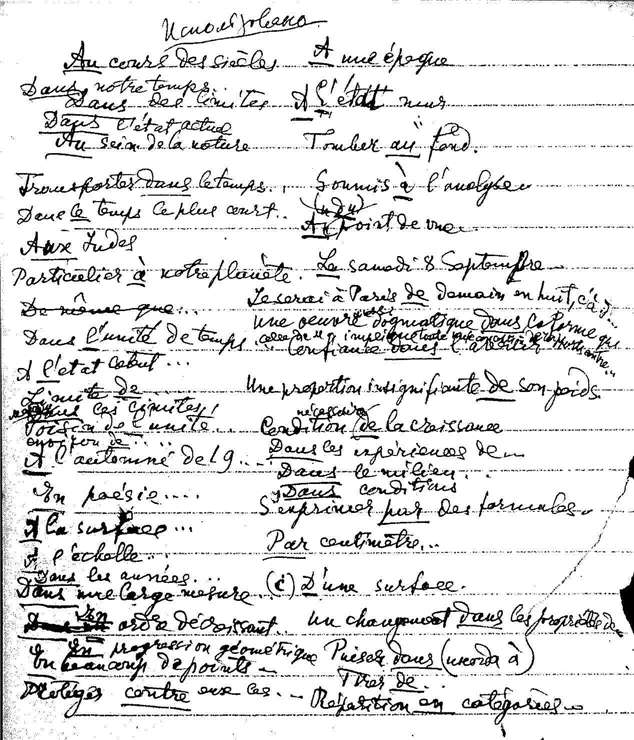 Использовано
Au cours des siècles
Dans notre temps...
Dans des limites
Dans l'état actuel
Au sein de la nature
Transporter dans le temps..
Dans le temps le plus court..
Aux Indes
Particulier à notre planète.
De même que...
Dans l'unité de temps
A l'état
Limite de
Dans ces limites!
de l'unité...
A l'automne de 19...
En poésie....
A la surface...
A l'échelle...
Dans les années...
Dans une large mesure
En ordre décroissant.
En progression géométrique
En beaucoup de points.
Protégés contre eux les...
A une époque
A l'état
Tomber au fond.
Soumis à l'analyse
(иди)
Au point de vue
Le samedi 8 Septembre
Je serai à Paris de demain en huit, c'à d..
une oeuvre dogmatique dans la forme qui
confiance dans l'avenir
Une proportion insignifiante de son poids.
nécessaire
Condition (de la croissance
Dans les expériences de
Dans le milieu...
Dans conditions
S'exprimer par des formules
Par centimètre...
(C) D'une surface.
un changement dans les propriétés de
Puiser dans (иногда à)
Tirer de...
Répartition en catégories